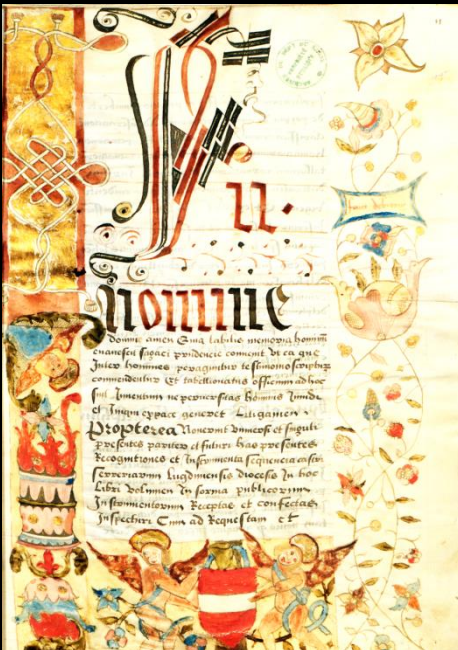 In
nomine
Domini amen Quia labilis memoria hominum
evanescit sagaci prudencie convenit ut ea que
Inter homines peraguntur testimonio scripture
commendentur Et tabellionatus officium ad hoc
fuit Inventum ne perversitas hominis
et litigamen
Propterea Noverint universi et singuli
presentes pariter et futuri has presentes
Recognitiones et Instrumenta sequencia castri
Lugdunensis diocesis In hoc
Libri volumen In forma publicorum
Instrumentorum Receptas et confectas
Cum ad Requestam et